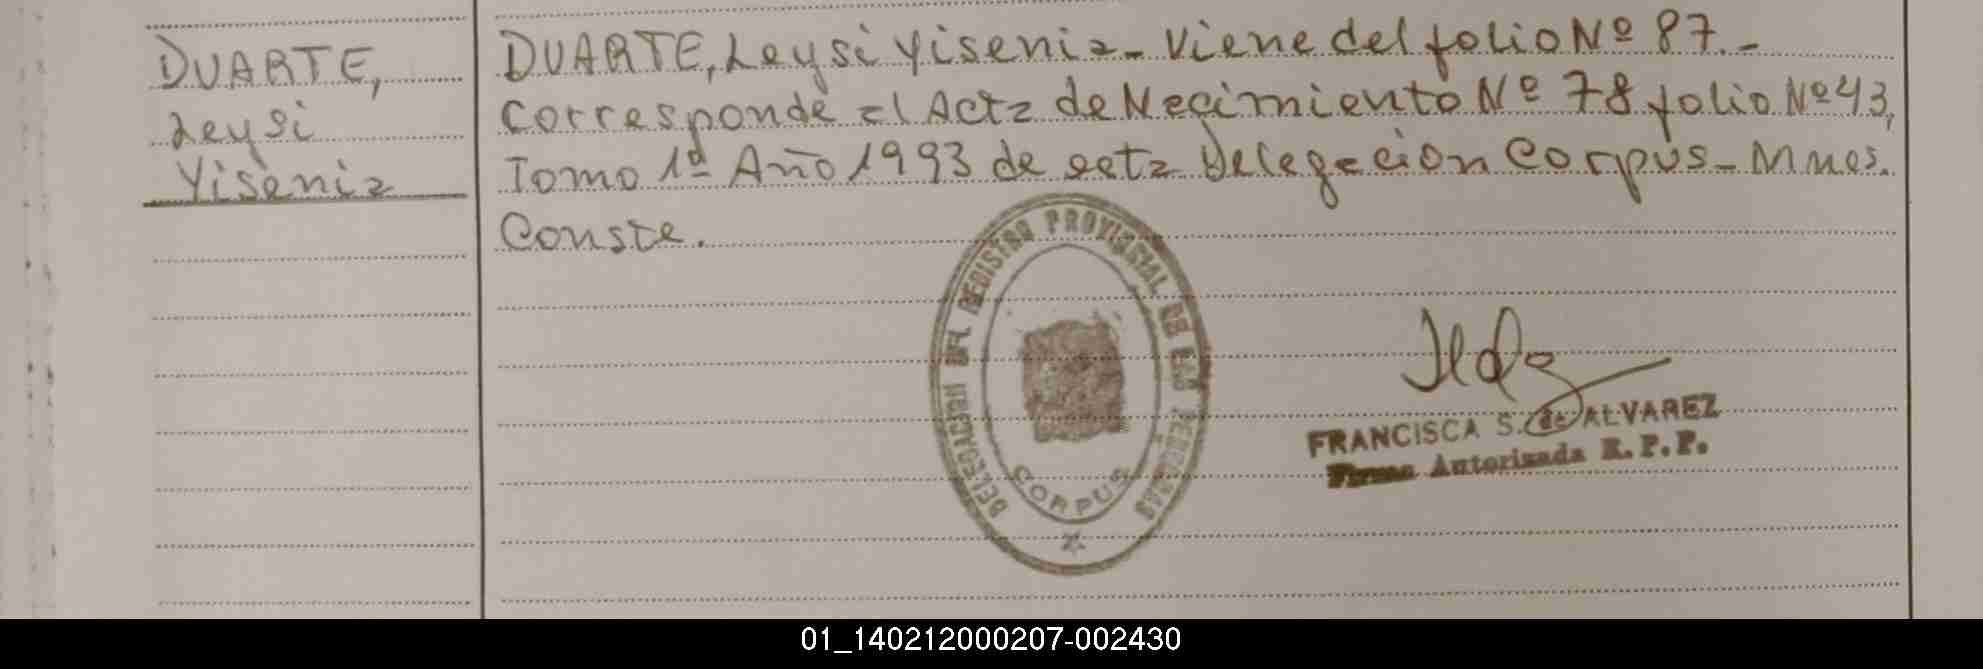 DUARTE,
Leysi
Yisenia
DUARTE, Leysi Yisenia - Viene del folio Nº 87.-
Corresponde al Acta de Nacimiento Nº 78 folio Nº 43,
Tomo 1º Año 1993 de esta Delegación Corpus - Mnes.
Conste.
DELEGACION DEL REGISTRO PROVINCIAL DE LAS PERSONAS
CORPUS
FRANCISCA S. de ALVAREZ
Firma Autorizada R. P. P.
01_140212000207-002430